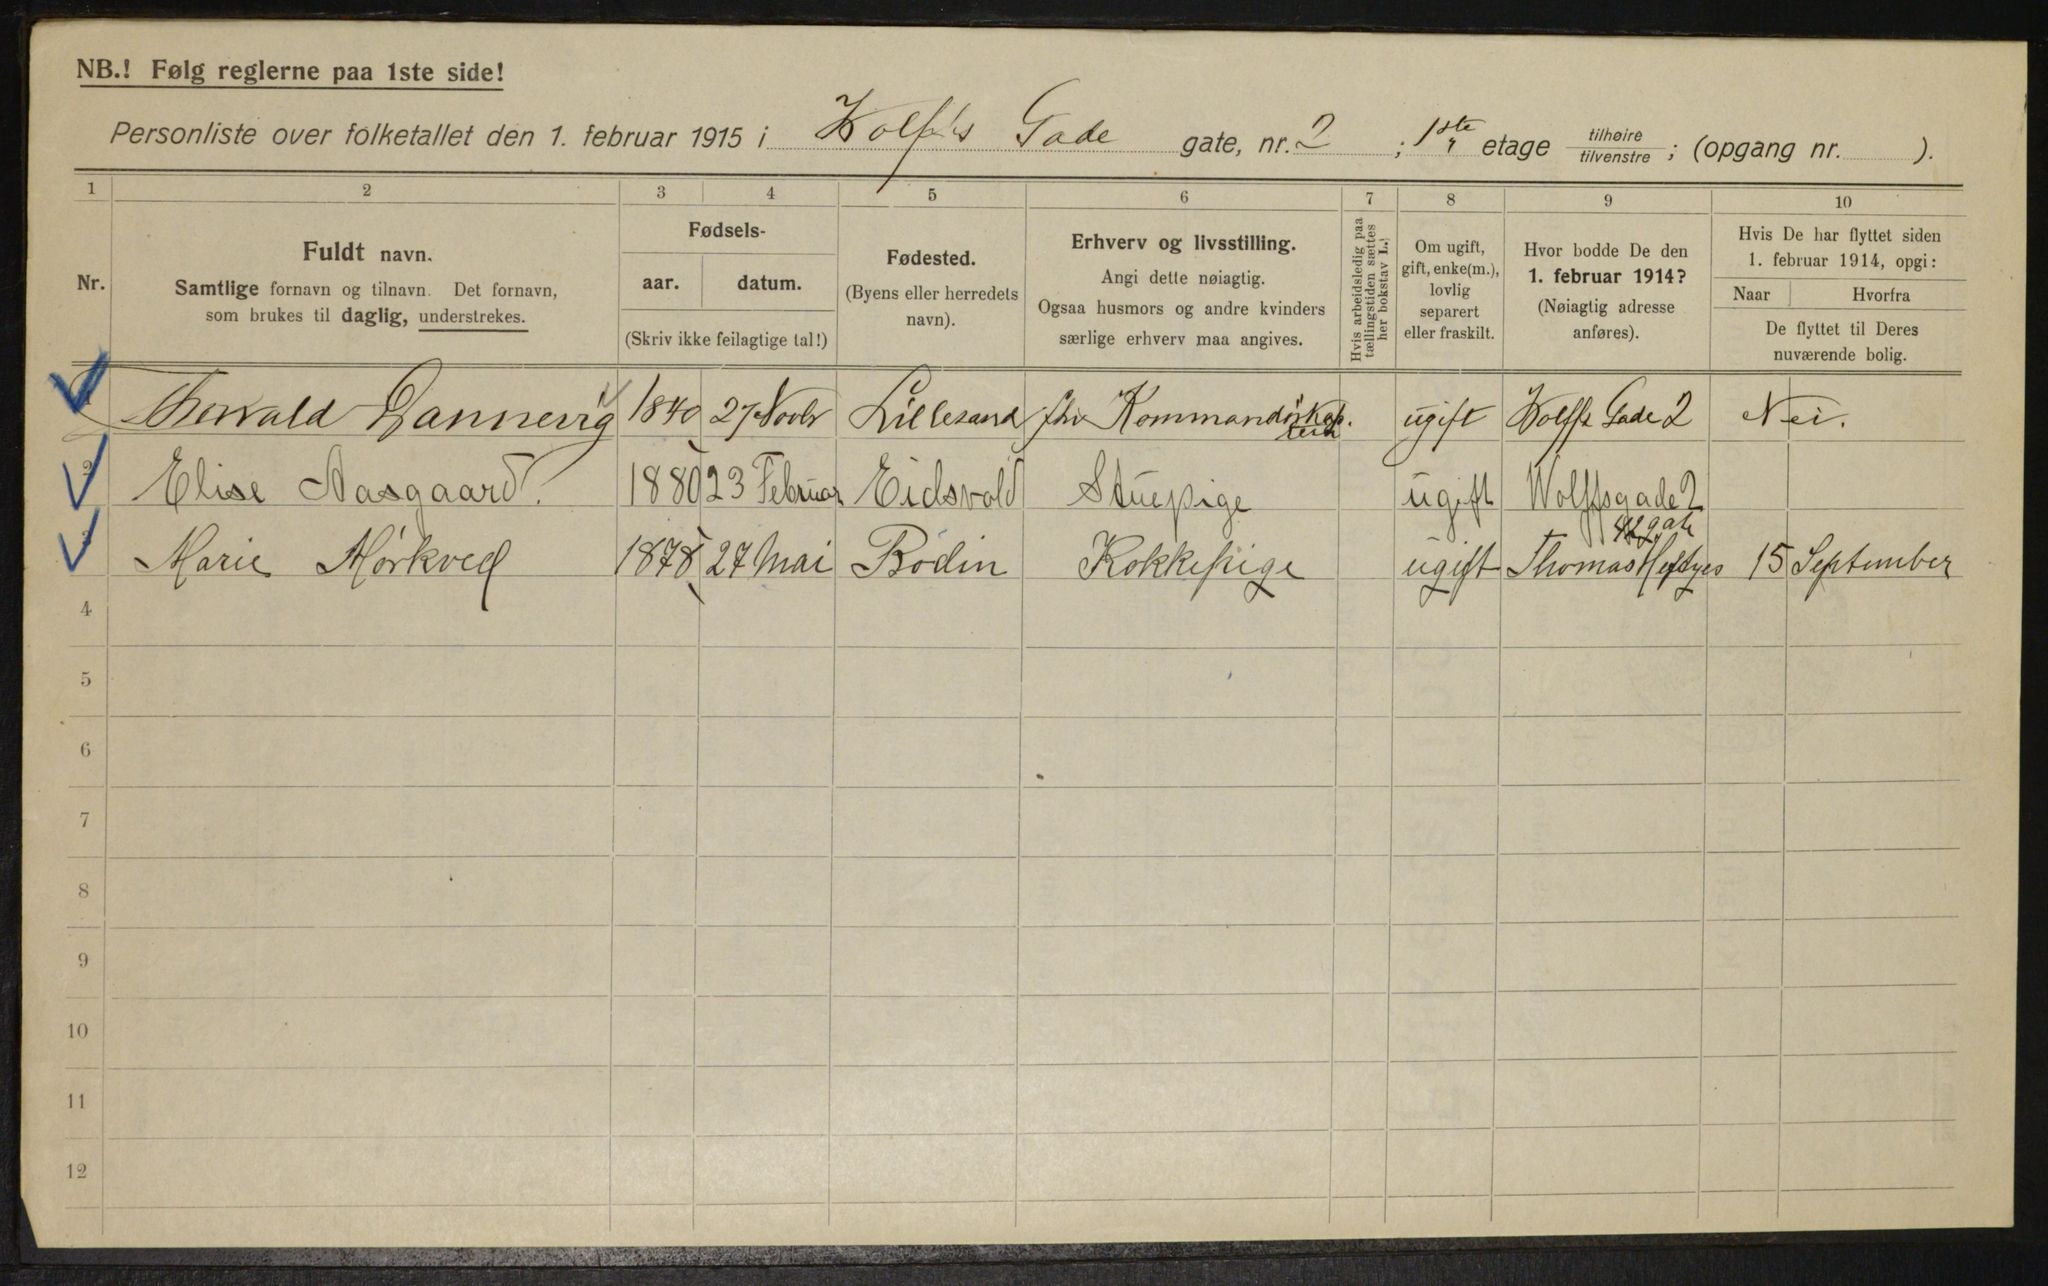 NB.! Følg reglerne paa 1ste side!
Personliste over folketallet den 1. februar 1915 i Wolffs Gade gate, nr. 2; 1ste etage tilhøire tilvenstre; (opgang nr. ).
1 2 3 4 5 6 7 8 9 10
Nr.
Fuldt navn.
Samtlige fornavn og tilnavn. Det fornavn,
som brukes til daglig, understrekes.
Fødsels-
aar. datum.
(Skriv ikke feilagtige tal!)
Fødested.
(Byens eller herredets
navn).
Erhverv og livsstilling.
Angi dette nøiagtig.
Ogsaa husmors og andre kvinders
særlige erhverv maa angives.
Hvis arbeidsledig paa
tællingstiden sættes
her bokstav L.
Om ugift,
gift, enke(m.),
lovlig
separert
eller fraskilt.
Hvor bodde De den
1. februar 1914?
(Nøiagtig adresse
anføres).
Hvis De har flyttet siden
1. februar 1914, opgi:
Naar Hvorfra
De flyttet til Deres
nuværende bolig.
1 Thorvald Dannevig 1840 27 Novbr Lillesand Kommandørkap. ugift Wolffs Gade 2 Nei.
2 Elise Aasgaard. 1880 23 Februar Eidsvold Stuepige ugift Wolffsgade 2
3 Marie Mørkved 1878 27 Mai Bodin Kokkepige ugift Thomas Heftyes 42 gate 15 September
4
5
6
7
8
9
10
11
12